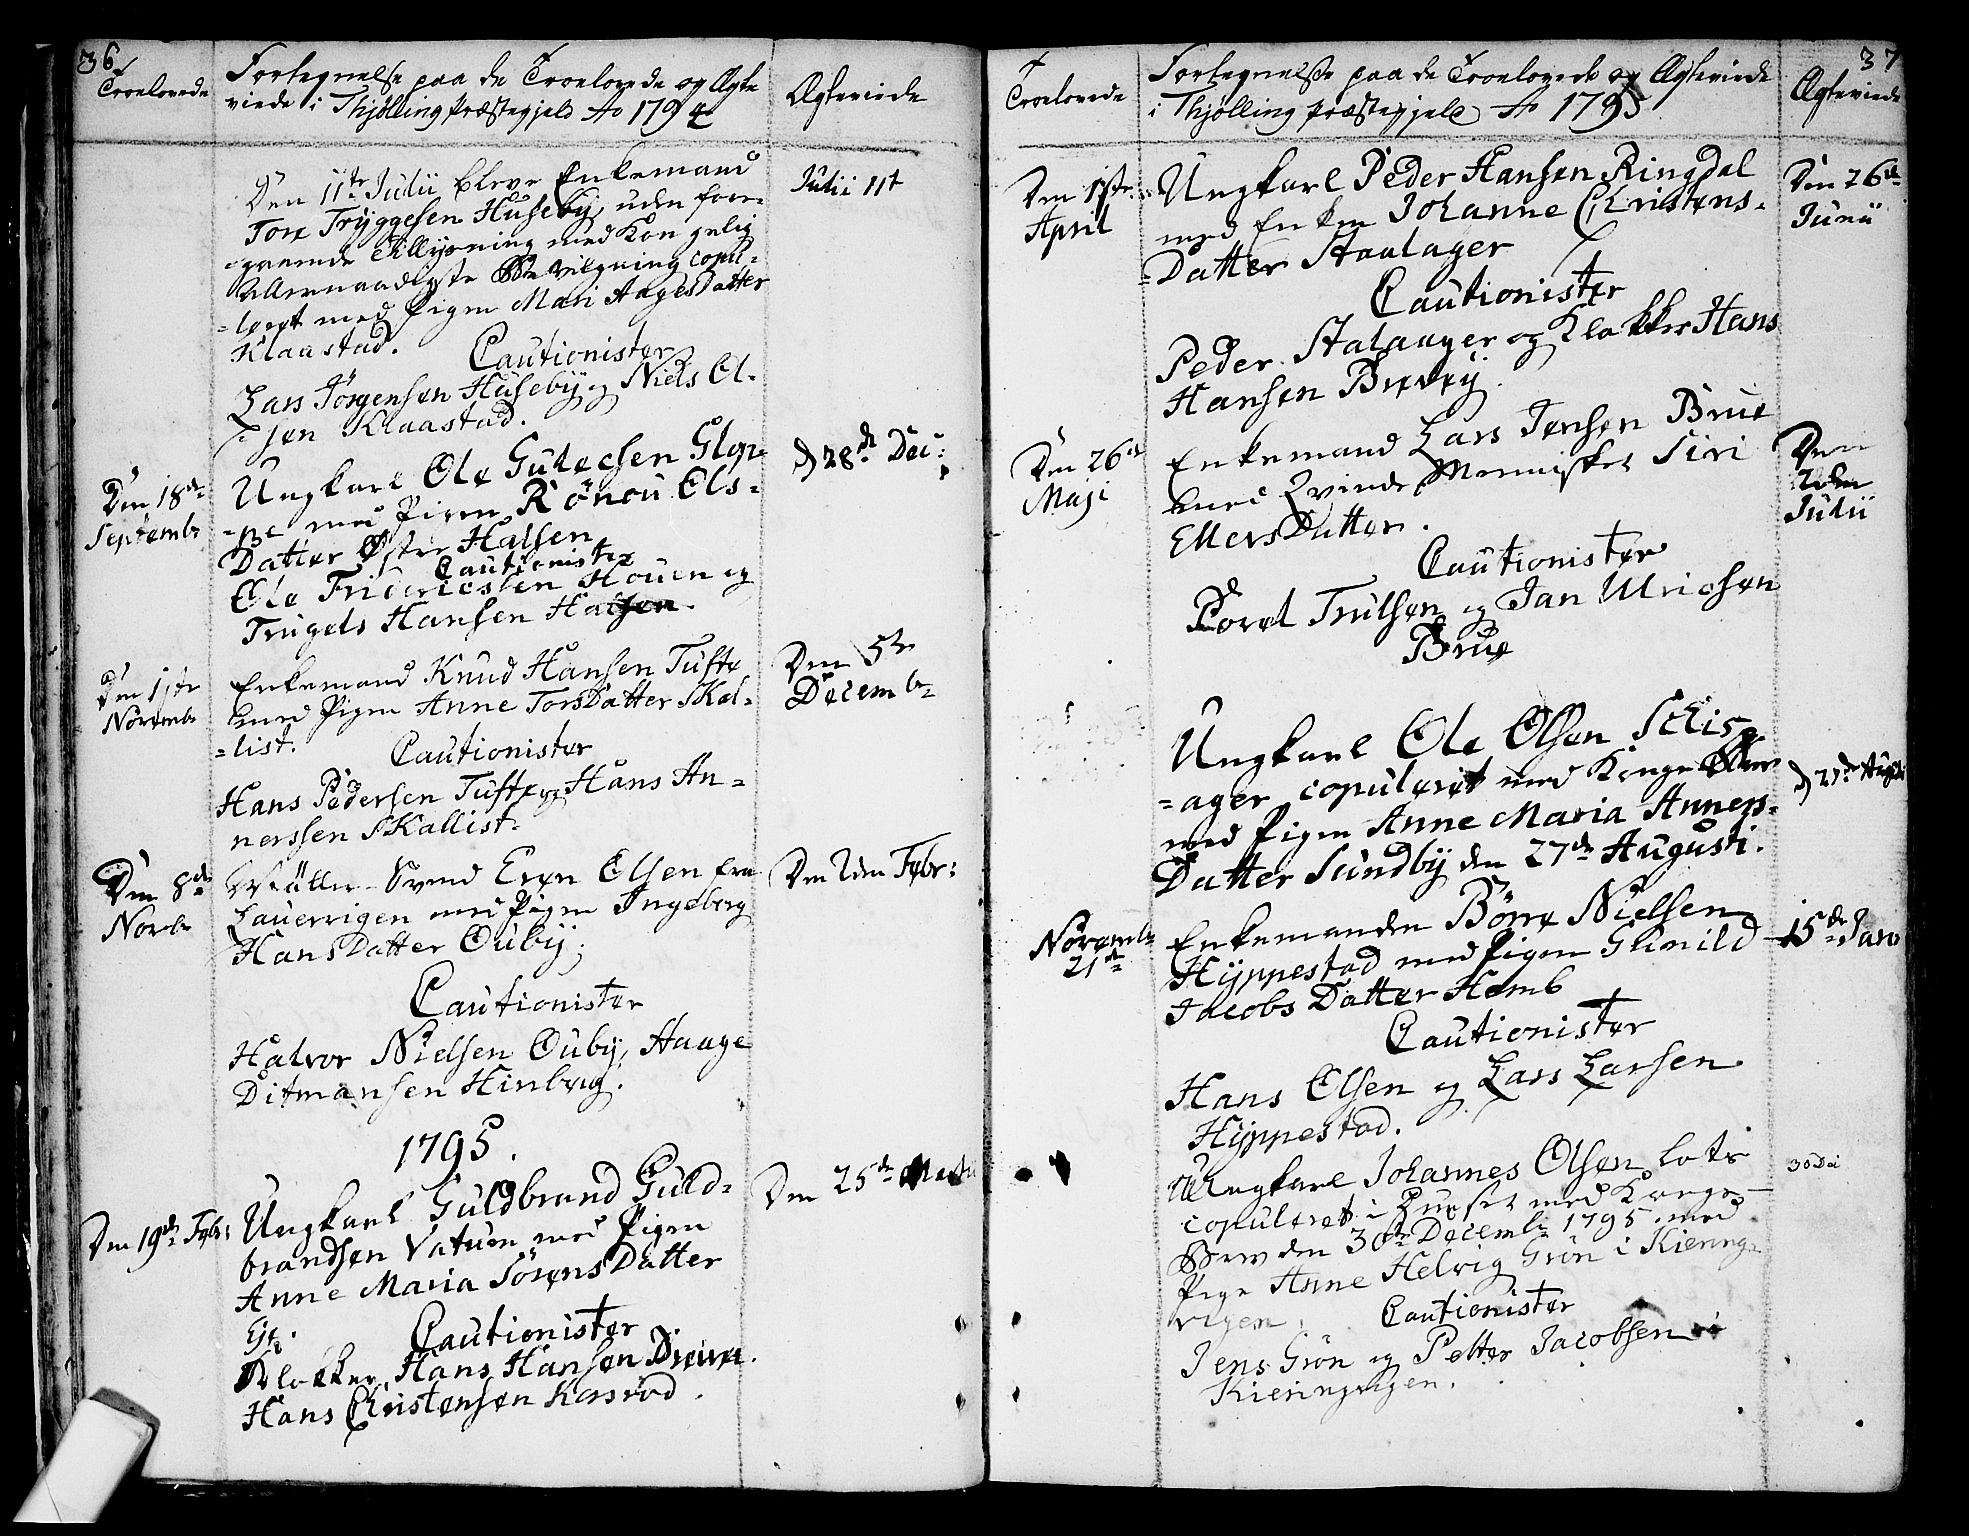 36
Troelovede
Fortegnelse paa de Troelovede og Ægte
viede i Thjølling Præstegjeld Ao 1794
Ægteviede
Den 11te Julii bleve Enkemand
Tore Tryggesen Huseby, uden fore-
gaaende Tillysning med Kongelig
Allernaadigste Bevilgning copu-
-leret med Pigen Mari AagesDatter
Klaastad.
Cautionister
Lars Jörgensen Huseby og Niels Ol-
sen Klaastad.
Julii 11t
Den 18de
Septembr
Ungkarl Ole Gulecsen Glop-
-pe med Pigen Rönou Ols-
Datter Øster Halsen
Cautionister
Ole Fridericssen Houen og
Trugels Hansen Halsen.
d 28de Dec:
Den 11te
Novembr
Enkemand Knud Hansen Tufte
med Pigen Anne TorsDatter Skal-
=list.
Cautionister
Hans Pedersen Tufte og Hans An=
nerssen Skallist.
Den 5te
Decembr
Den 8de
Novbr
Møller-Svend Even Olsen fra
Lauervigen med Pigen Ingeborg
HansDatter Ouby.
Cautionister
Halvor Nielsen Ouby, Haage
Ditmansen Hinbrig.
Den 2den Febr:
1795.
Den 19de Febr:
Ungkarl Guldbrand Guld-
brandsen Vatuen med Pigen
Anne Maria SörensDatter
Eje.
Cautionister
Klokker Hans Hansen
Hans Christensen Kasröd.
Den 25de Martii
37
Troelovede
Fortegnelse paa de Troelovede og Ægteviede
i Thjølling Præstegjeld Ao 1795
Ægteviede
Den 17de
April
Ungkarl Peder Hansen Ringdal
med Enken Johanne Christens-
-Datter Staalager
Cautionister
Peder Stalaager og Klokker Hans
Hansen
Den 26de
Junii
Den 26de
Maji
Enkemand Lars Jensen Brue
med Qvinde Mennisket Siri
EllersDatter.
Cautionister
Povel Trulsen og Jan Ulricsen
Brue
Den
Julii
Ungkarl Ole Olsen Schis-
=ager copuleret med Konge Brev
med Pigen Anne Maria Anners-
Datter Sundby den 27de Augusti.
d 27de Augusti
Novembr
21de
Enkemanden Börre Nielsen
Hyppestad med Pigen Gunild
Jacobs Datter Hemb
Cautionister
Hans Olsen og Lars Larsen
Hyppestad.
15de Janv
Ungkarl Johannes Olsen, lots
copuleret i Huuset med Konge-
Brev den 30te Decembr 1795. med
Pige Anne Helvig Grön i Kiering-
vigen.
Cautionister
Jens Grön og Petter Jacobsen i
Kieringvigen.
30 Dec